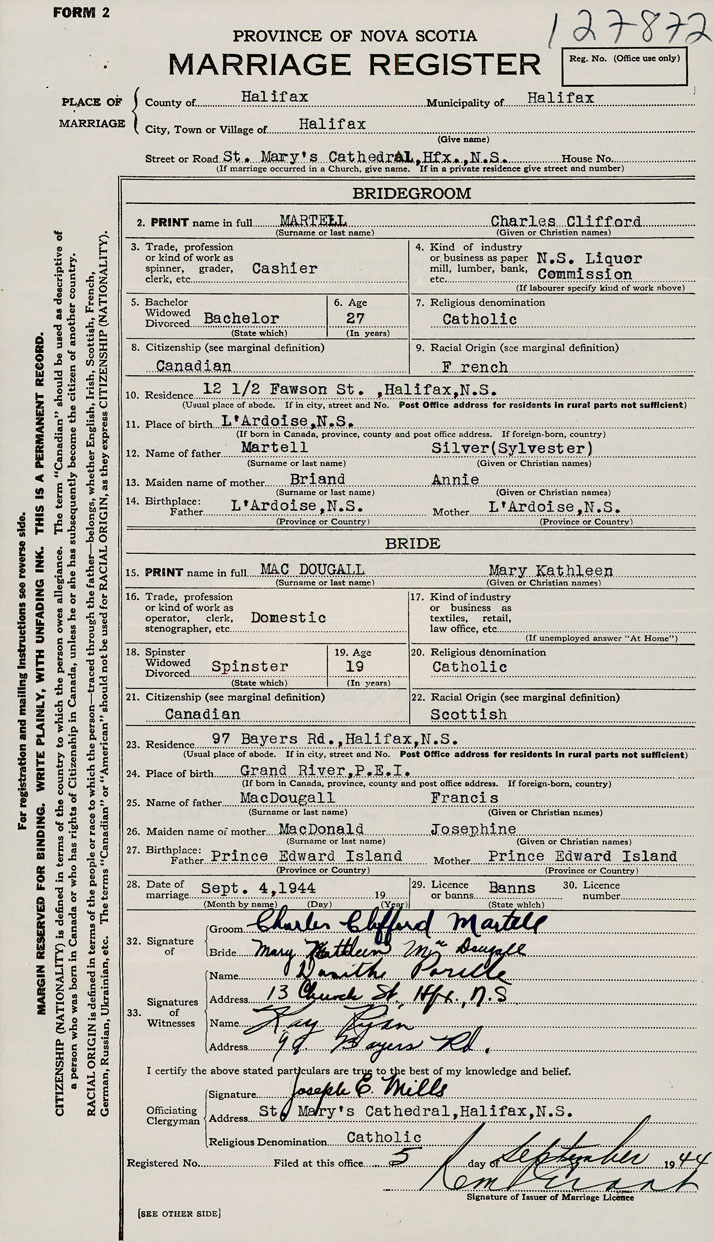 FORM 2
127872
PROVINCE OF NOVA SCOTIA
MARRIAGE REGISTER
Reg. No. (Office use only)
PLACE OF MARRIAGE
County of Halifax Municipality of Halifax
City, Town or Village of Halifax
(Give name)
Street or Road St. Mary's Cathedral,Hfx.,N.S. House No.
(If marriage occurred in a Church, give name. If in a private residence give street and number)
BRIDEGROOM
2. PRINT name in full MARTELL Charles Clifford
(Surname or last name) (Given or Christian names)
3. Trade, profession or kind of work as spinner, grader, clerk, etc. Cashier
4. Kind of industry or business as paper mill, lumber, bank, etc. N.S. Liquor Commission
(If labourer specify kind of work above)
5. Bachelor Widowed Divorced Bachelor
(State which)
6. Age 27
(In years)
7. Religious denomination
Catholic
8. Citizenship (see marginal definition)
Canadian
9. Racial Origin (see marginal definition)
F rench
10. Residence 12 1/2 Fawson St. ,Halifax,N.S.
(Usual place of abode. If in city, street and No. Post Office address for residents in rural parts not sufficient)
11. Place of birth L'Ardoise,N.S.
(If born in Canada, province, county and post office address. If foreign-born, country)
12. Name of father Martell Silver(Sylvester)
(Surname or last name) (Given or Christian names)
13. Maiden name of mother Briand Annie
(Surname or last name) (Given or Christian names)
14. Birthplace: Father L'Ardoise,N.S. Mother L'Ardoise,N.S.
(Province or Country) (Province or Country)
BRIDE
15. PRINT name in full MAC DOUGALL Mary Kathleen
(Surname or last name) (Given or Christian names)
16. Trade, profession or kind of work as operator, clerk, stenographer, etc. Domestic
17. Kind of industry or business as textiles, retail, law office, etc.
(If unemployed answer "At Home")
18. Spinster Widowed Divorced Spinster
(State which)
19. Age 19
(In years)
20. Religious denomination
Catholic
21. Citizenship (see marginal definition)
Canadian
22. Racial Origin (see marginal definition)
Scottish
23. Residence 97 Bayers Rd.,Halifax,N.S.
(Usual place of abode. If in city, street and No. Post Office address for residents in rural parts not sufficient)
24. Place of birth Grand River,P.E.I.
(If born in Canada, province, county and post office address. If foreign-born, country)
25. Name of father MacDougall Francis
(Surname or last name) (Given or Christian names)
26. Maiden name of mother MacDonald Josephine
(Surname or last name) (Given or Christian names)
27. Birthplace: Father Prince Edward Island Mother Prince Edward Island
(Province or Country) (Province or Country)
28. Date of marriage Sept. 4,1944 19
(Month by name) (Day) (Year)
29. Licence or banns Banns
(State which)
30. Licence number
32. Signature of
Groom Charles Clifford Martell
Bride Mary Kathleen Mac Dougall
33. Signatures of Witnesses
Name
Address 13 Church St, Hfx., N.S
Name Kay Ryan
Address 99 Bayers Rd.
I certify the above stated particulars are true to the best of my knowledge and belief.
Officiating Clergyman
Signature Joseph E. Mills
Address St. Mary's Cathedral,Halifax,N.S.
Religious Denomination Catholic
Registered No. Filed at this office 5 day of September 1944
Signature of Issuer of Marriage Licence
[SEE OTHER SIDE]
For registration and mailing instructions see reverse side.
MARGIN RESERVED FOR BINDING. WRITE PLAINLY, WITH UNFADING INK. THIS IS A PERMANENT RECORD.
CITIZENSHIP (NATIONALITY) is defined in terms of the country to which the person owes allegiance. The term "Canadian" should be used as descriptive of
a person who was born in Canada or who has rights of Citizenship in Canada, unless he or she has subsequently become the citizen of another country.
RACIAL ORIGIN is defined in terms of the people or race to which the person—traced through the father—belongs, whether English, Irish, Scottish, French,
German, Russian, Ukrainian, etc. The terms "Canadian" or "American" should not be used for RACIAL ORIGIN, as they express CITIZENSHIP (NATIONALITY).